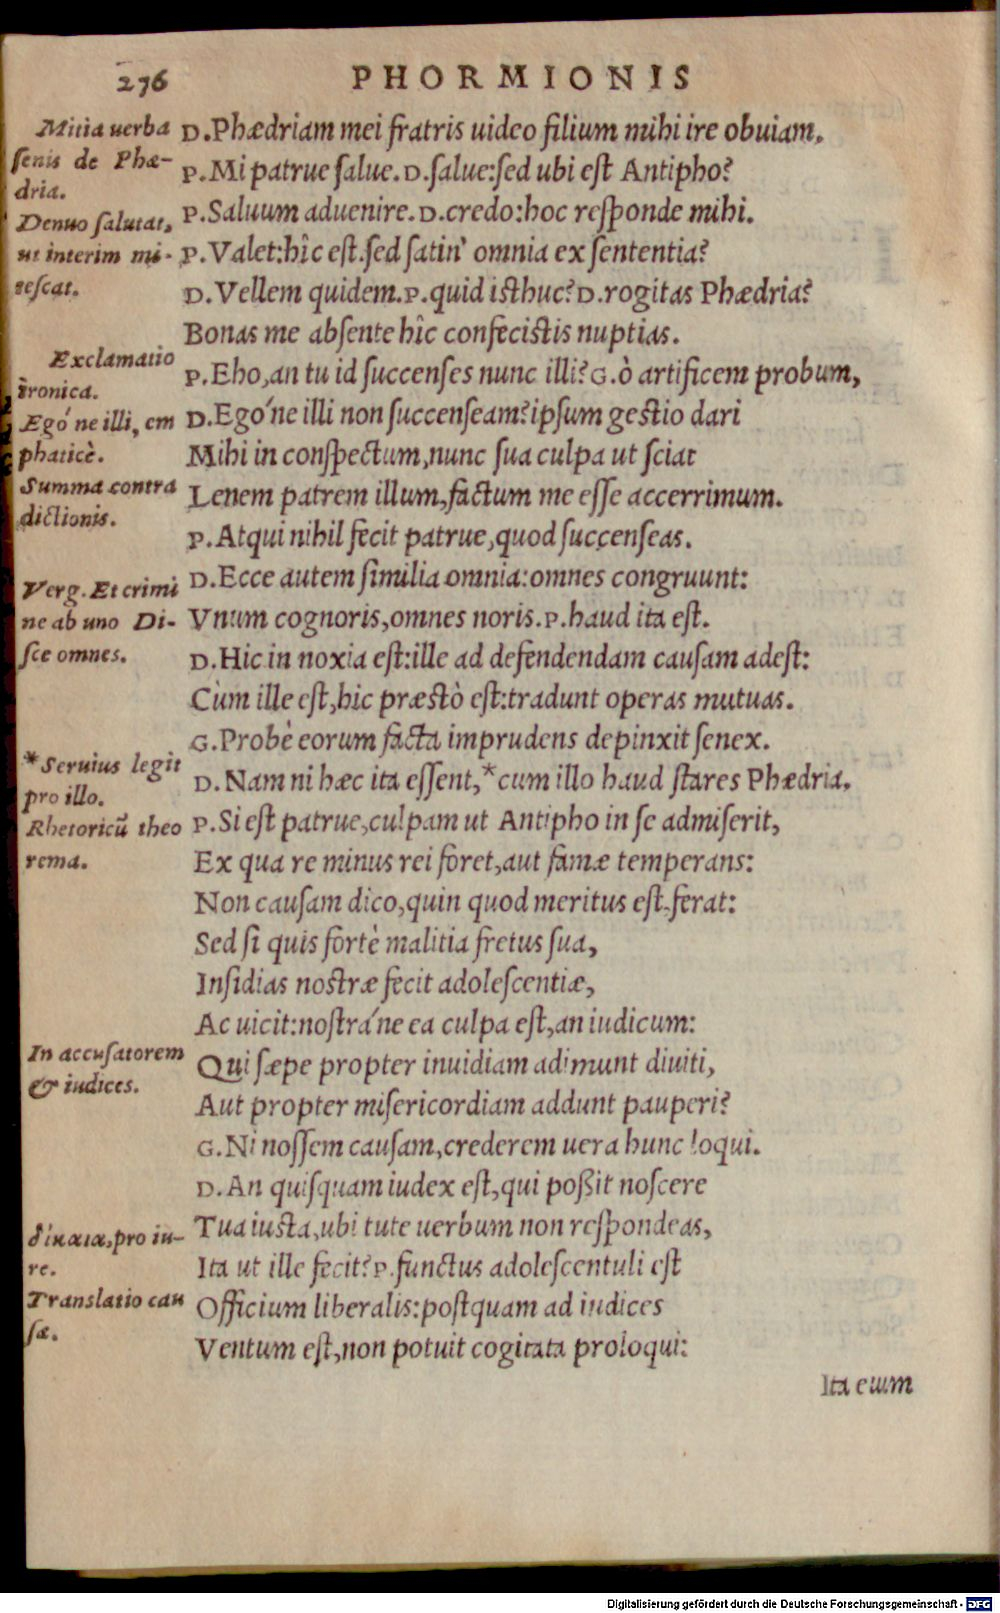 276
PHORMIONIS
Mitia uerba
ſenis de Phæ-
dria.
Denuo ſalutat,
ut interim mi-
teſcat.
Exclamatio
ironica.
Egóne illi, em
phaticè.
Summa contra
dictionis.
Verg. Et crimi
ne ab uno Di-
ſce omnes.
*Seruius legit
pro illo.
Rhetoricũ theo
rema.
In accuſatorem
& iudices.
δίκαια, pro iu-
re.
Translatio cau
ſæ.
D. Phædriam mei fratris uideo filium mihi ire obuiam.
P. Mi patrue ſalue. D. ſalue: ſed ubi eſt Antipho?
P. Saluum aduenire. D. credo: hoc reſponde mihi.
P. Valet: hîc eſt. ſed ſatin' omnia ex ſententia?
D. Vellem quidem. P. quid iſthuc? D. rogitas Phædria?
Bonas me abſente hîc confeciſtis nuptias.
P. Eho, an tu id ſuccenſes nunc illi? G. ò artificem probum,
D. Egóne illi non ſuccenſeam? ipſum geſtio dari
Mihi in conſpectum, nunc ſua culpa ut ſciat
Lenem patrem illum, factum me eſſe accerrimum.
P. Atqui nihil fecit patrue, quod ſuccenſeas.
D. Ecce autem ſimilia omnia: omnes congruunt:
Vnum cognoris, omnes noris. P. haud ita eſt.
D. Hic in noxia eſt: ille ad defendendam cauſam adeſt:
Cùm ille eſt, hic præſtò eſt: tradunt operas mutuas.
G. Probè eorum facta imprudens depinxit ſenex.
D. Nam ni hæc ita eſſent, *cum illo haud ſtares Phædria.
P. Si eſt patrue, culpam ut Antipho in ſe admiſerit,
Ex qua re minus rei foret, aut famæ temperans:
Non cauſam dico, quin quod meritus eſt. ferat:
Sed ſi quis fortè malitia fretus ſua,
Inſidias noſtræ fecit adoleſcentiæ,
Ac uicit: noſtráne ea culpa eſt, an iudicum:
Qui ſæpe propter inuidiam adimunt diuiti,
Aut propter miſericordiam addunt pauperi?
G. Ni noſſem cauſam, crederem uera hunc loqui.
D. An quiſquam iudex eſt, qui poßit noſcere
Tua iuſta, ubi tute uerbum non reſpondeas,
Ita ut ille fecit? P. functus adoleſcentuli eſt
Officium liberalis: poſtquam ad iudices
Ventum eſt, non potuit cogitata proloqui:
Ita eum
Digitalisierung gefördert durch die Deutsche Forschungsgemeinschaft - DFG